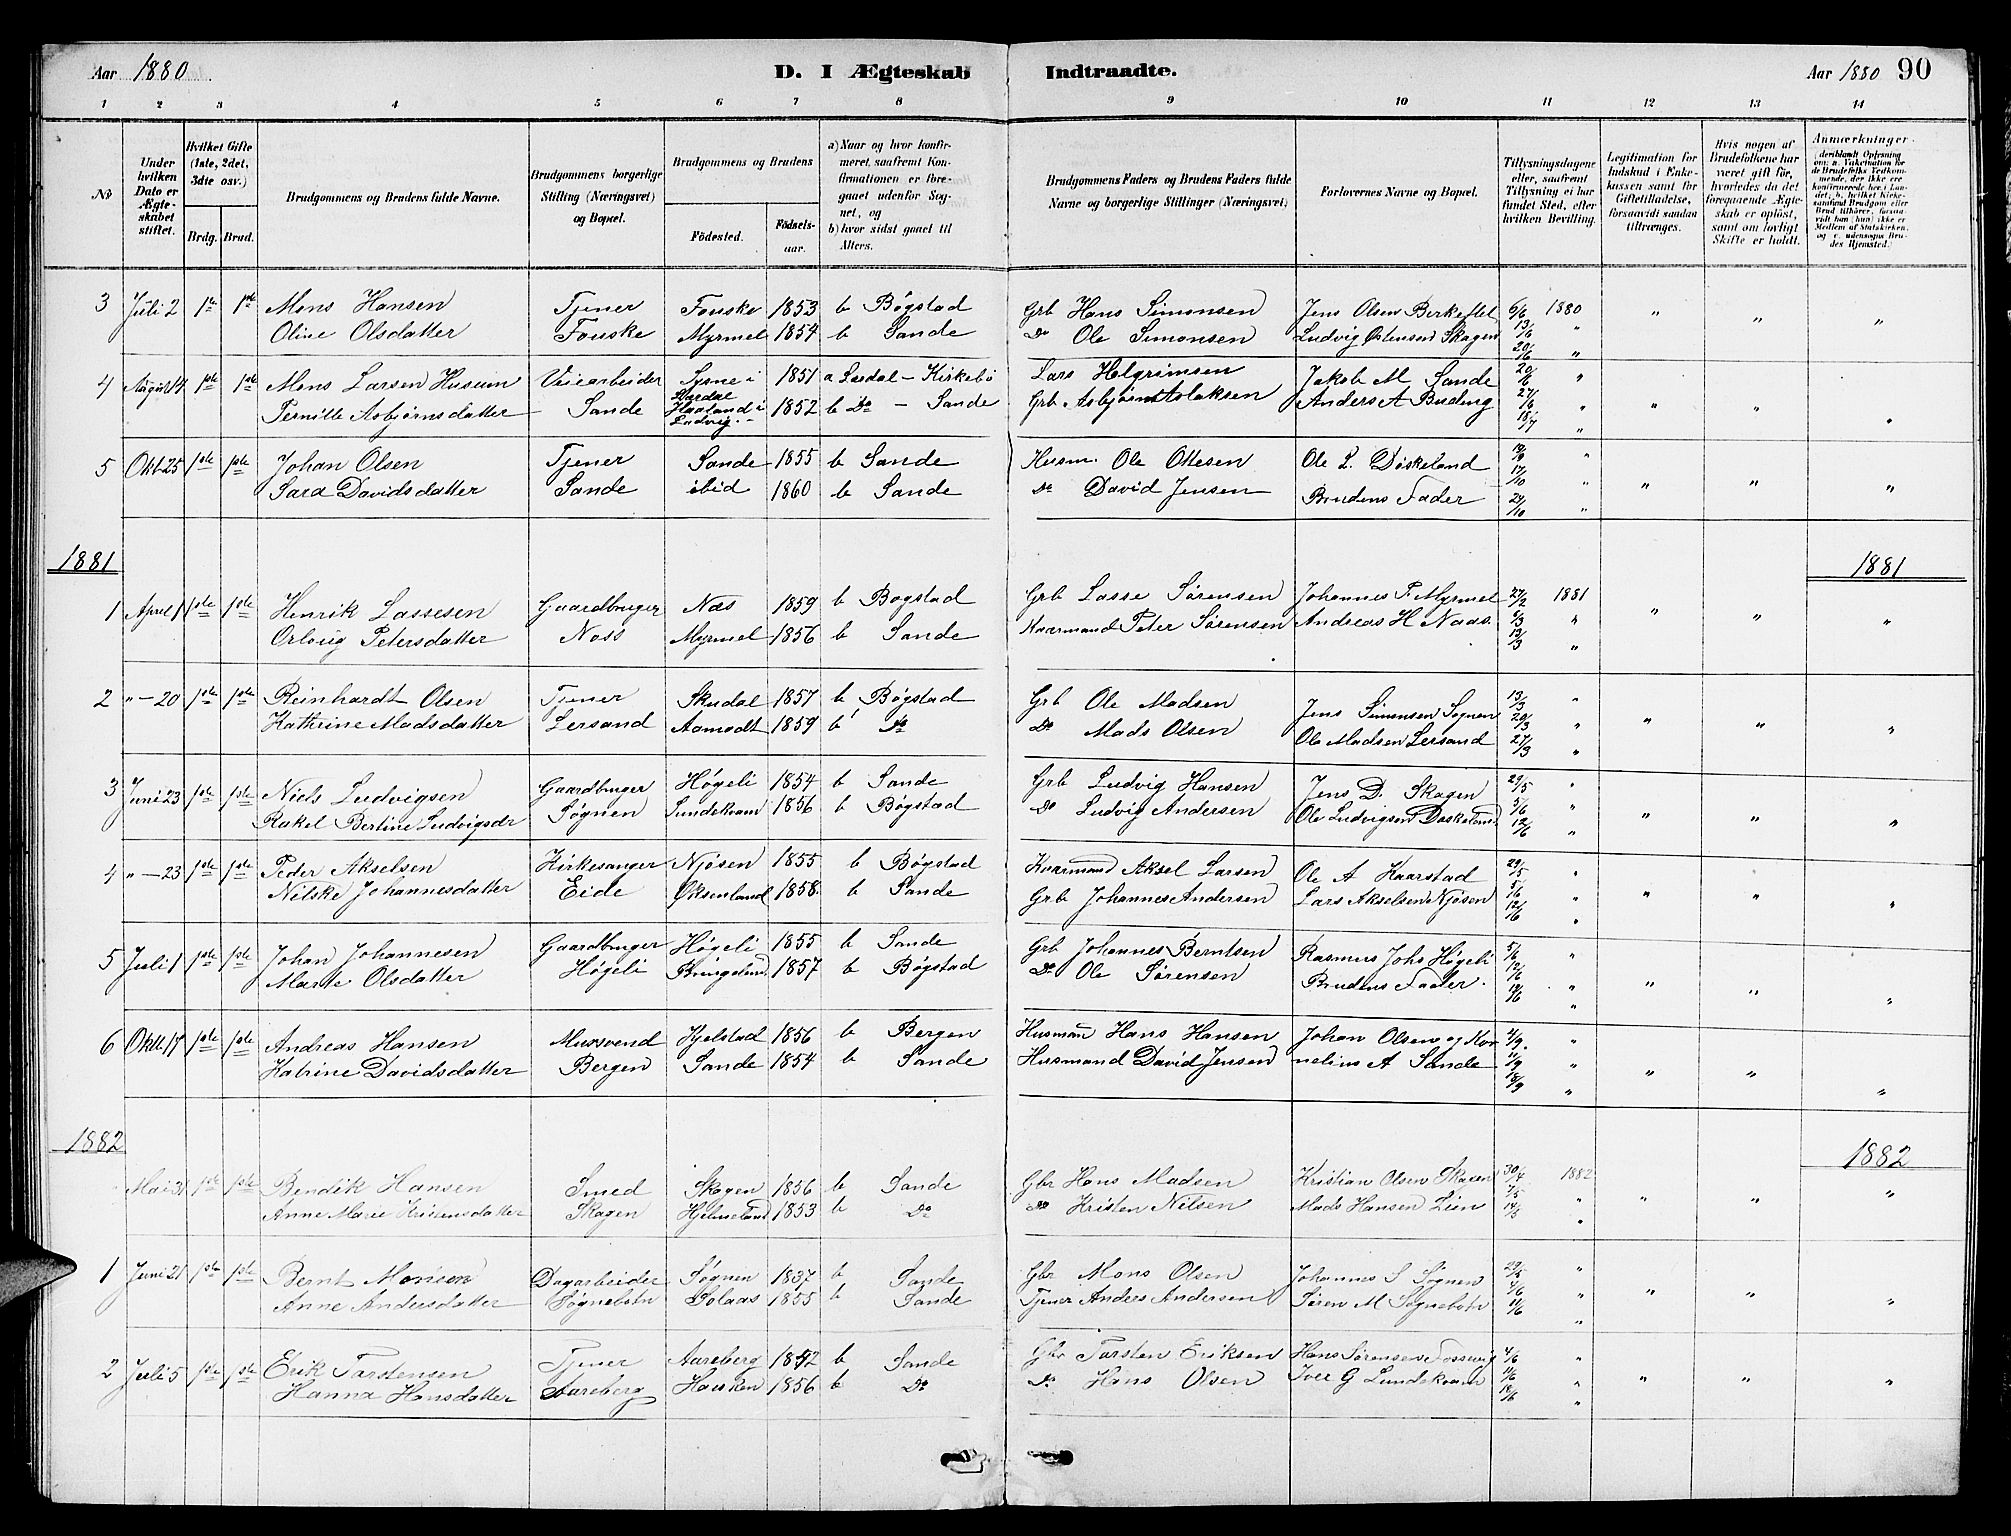 Aar 1880
D. I Ægteskab Indtraadte.
Aar 1880 90
1 2 3 4 5 6 7 8 9 10 11 12 13 14
No
Under hvilken Dato er Ægteskabet stiftet.
Hvilket Gifte (1ste, 2det, 3die osv.)
Brdg. Brud.
Brudgommens og Brudens fulde Navne.
Brudgommens borgerlige Stilling (Næringsvei) og Bopæl.
Brudgommens og Brudens
Födested. Födselsaar.
a) Naar og hvor konfirmeret, saafremt Konfirmationen er foregaaet udenfor Sognet, og
b) hvor sidst gaaet til Alters.
Brudgommens Faders og Brudens Faders fulde Navne og borgerlige Stillinger (Næringsvei)
Forlovernes Navne og Bopæl.
Tillysningsdagene eller, saafremt Tillysning ei har fundet Sted, efter hvilken Bevilling.
Legitimation for Indskud i Enkekassen samt for Giftetilladelse, forsaavidt saadan tiltrænges.
Hvis nogen af Brudefolkene har været gift før, hvorledes da det foregaaende Ægteskab er oplöst, samt om lovligt Skifte er holdt.
Anmærkninger.
3 Juli 2 1ste 1ste Mons Hansen Tjener Fonske 1853 b Bøgstad Grb Hans Simonsen Jens Olsen Birkeflet 6/6 1880 " " "
Oline Olsdatter Fonske Myrmel 1854 b Sande Do Ole Simonsen Ludvig Østensen Skagen 13/6 "
20/6 "
4 August 14 1ste 1ste Mons Larsen Husum Veiearbeider Lysne i 1851 a Lærdal - Kirkebø Lars Helgrimsen Jakob M Sande 20/6 "
Pernille Asbjørnsdatter Sande 1852 b Do - Sande Grb. Asbjørn Aslaksen Anders A Buding 27/6 " " " "
18/7 "
5 Okt 25 1ste 1ste Johan Olsen Tjener Sande 1855 b Sande Husm. Ole Ottesen Ole L. Døskeland "
Sara Davidsdatter Sande ibid 1860 b Sande Do David Jensen Brudens Fader 17/10 " " " "
24/10 "
1881 1881
1 April 1 1ste 1ste Henrik Lassesen Gaardbruger Næs 1859 b Bøgstad Grb Lasse Sørensen Johannes P. Myrmel 27/2 1881 " " "
Orlovig Petersdatter Næss Myrmel 1856 b Sande Kaarmand Peter Sørensen Andreas H Naas 6/3 "
13/3 "
2 " - 20 1ste 1ste Reinhardt Olsen Tjener Skudal 1857 b Bøgstad Grb Ole Madsen Jens Simonsen Sognen 13/3 "
Kathrine Madsdatter Lersand Aamodt 1859 b Do Do Mads Olsen Ole Madsen Lersand 20/3 " " " "
27/3 "
3 Juni 23 1ste 1ste Niels Ludvigsen Gaardbruger Høgeli 1854 b Sande Grb Ludvig Hansen Jens D. Skagen 29/5 "
Rakel Bertine Ludvigsdr Søgnen Lundekvam 1856 b Bøgstad Do Ludvig Andersen Ole Ludvigsen Døskeland 5/6 " " " "
12/6 "
4 " - 23 1ste 1ste Peder Akselsen Kirkesanger Njøsen 1855 b Bøgstad Kaarmand Aksel Larsen Ole A Kaarstad 29/5 "
Nilske Johannesdatter Eide Øksenland 1858 b Sande Grb Johannes Andersen Lars Akselsen Njøsen 5/6 " " " "
12/6 "
5 Juli 1 1ste 1ste Johan Johannesen Gaardbruger Høgeli 1855 b Sande Grb Johannes Berntsen Rasmus Johs Høgeli 5/6 "
Marte Olsdatter Høgeli 1857 b Bøgstad Do Ole Sørensen Brudens Fader. 12/6 " " " "
19/6 "
6 Oktb 17 1ste 1ste Andreas Hansen Mursvend Kjelstad 1856 b Bergen Husman Hans Hansen Johan Olsen og Kor 4/9. "
Katrine Davidsdatter Bergen Sande 1854 b Sande Husmand David Jensen nelius A Sande 11/9 " " " "
18/9 "
1882 1882
Mai 31 1ste 1ste Bendik Hansen Smed Skagen 1856 b Sande Gbr Hans Madsen Kristian Olsen Skagen 30/4 1882
Anne Marie Kristensdatter Skagen Hjelmeland 1853 b Do Do Kristen Nilsen Mads Hansen Lien 7/5 " " " "
14/5 "
1 Juni 21 1ste 1ste Bernt Monsen Dagarbeider Søgnen 1837 b Sande Gbr Mons Olsen Johannes S Søgnen 29/5 "
Anne Andersdatter Søgnebotn Solaas 1855 b Sande Tjener Anders Andersen Søren M Søgnebotn 4/6 " " " "
11/6 "
2 Juli 5 1ste 1ste Erik Tarstensen Tjener Aareberg 1852 b Sande Gbr Tarsten Eriksen Hans Sørensen 4/6 "
Hanna Hansdatter Aareberg 1856 b Do Do Hans Olsen Iver G Lundekvam 11/6 " " " "
18/6 "